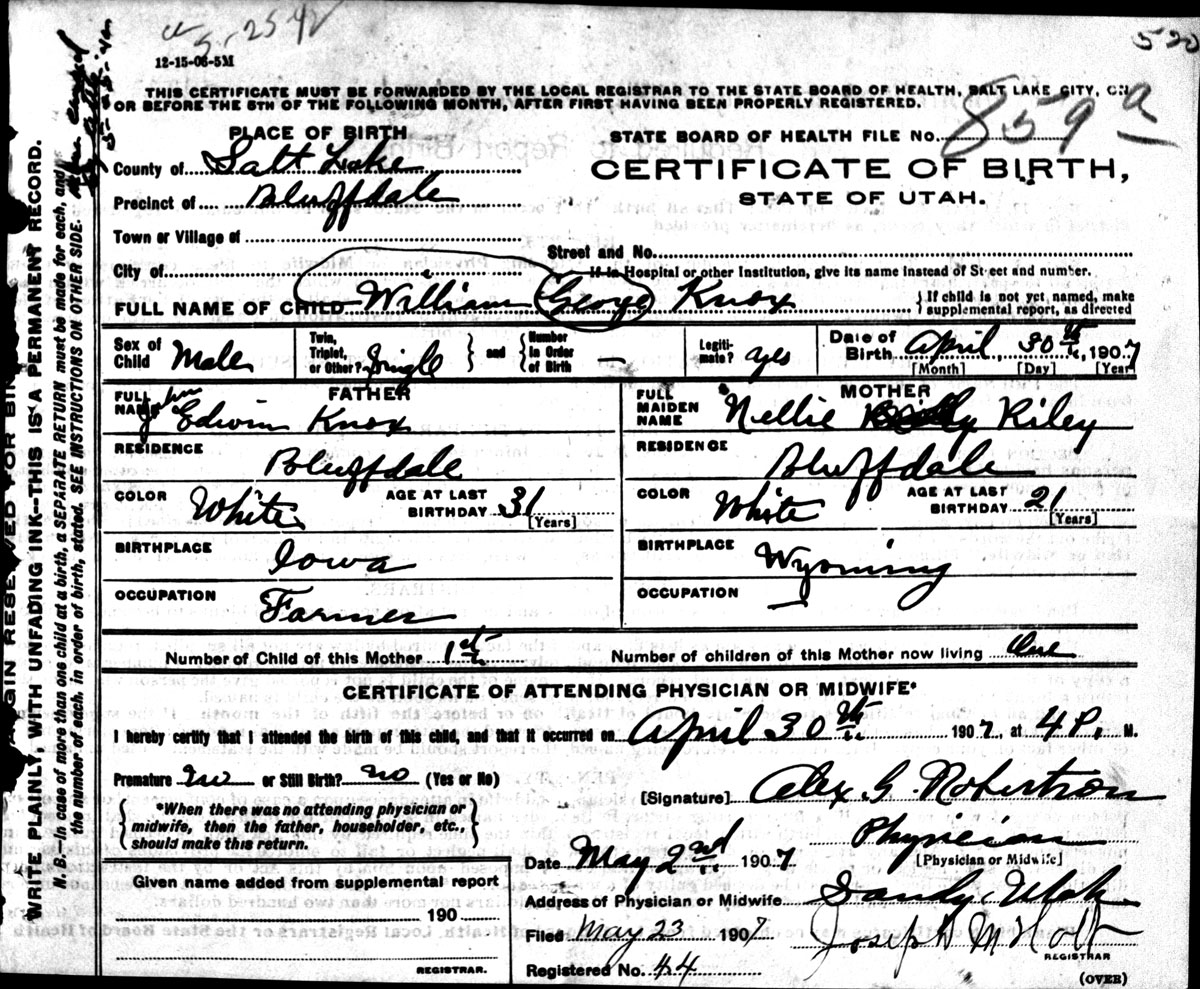 5-25-42
520
12-15-06-5M
THIS CERTIFICATE MUST BE FORWARDED BY THE LOCAL REGISTRAR TO THE STATE BOARD OF HEALTH, SALT LAKE CITY, ON
OR BEFORE THE 5TH OF THE FOLLOWING MONTH, AFTER FIRST HAVING BEEN PROPERLY REGISTERED.
PLACE OF BIRTH
STATE BOARD OF HEALTH FILE No. 859 a
County of Salt Lake
CERTIFICATE OF BIRTH,
Precinct of Bluffdale
STATE OF UTAH.
Town or Village of
Street and No.
City of
If in Hospital or other Institution, give its name instead of Street and number.
FULL NAME OF CHILD William George Knox
If child is not yet named, make supplemental report, as directed
Sex of Child Male
Twin, Triplet, or Other? Single
and
Number in Order of Birth —
Legitimate? yes
Date of Birth April 30th, 1907
[Month] [Day] [Year]
FATHER
FULL NAME John Edwin Knox
MOTHER
FULL MAIDEN NAME Nellie Riley
RESIDENCE Bluffdale
RESIDENCE Bluffdale
COLOR White AGE AT LAST BIRTHDAY 31 [Years]
COLOR White AGE AT LAST BIRTHDAY 21 [Years]
BIRTHPLACE Iowa
BIRTHPLACE Wyoming
OCCUPATION Farmer
OCCUPATION —
Number of Child of this Mother 1st
Number of children of this Mother now living One
CERTIFICATE OF ATTENDING PHYSICIAN OR MIDWIFE*
I hereby certify that I attended the birth of this child, and that it occurred on April 30th 1907, at 4 P. M.
Premature no or Still Birth? no (Yes or No)
[Signature] Alex G. Robertson
*When there was no attending physician or midwife, then the father, householder, etc., should make this return.
Physician
[Physician or Midwife]
Date May 2nd 1907
Given name added from supplemental report
190
REGISTRAR.
Address of Physician or Midwife Sandy Utah
Filed May 23 1907 Joseph M Holt
REGISTRAR
Registered No. 44
(OVER)
MARGIN RESERVED FOR BIN
WRITE PLAINLY, WITH UNFADING INK—THIS IS A PERMANENT RECORD.
N. B.—In case of more than one child at a birth, a SEPARATE RETURN must be made for each, and
the number of each, in order of birth, stated. SEE INSTRUCTIONS ON OTHER SIDE.